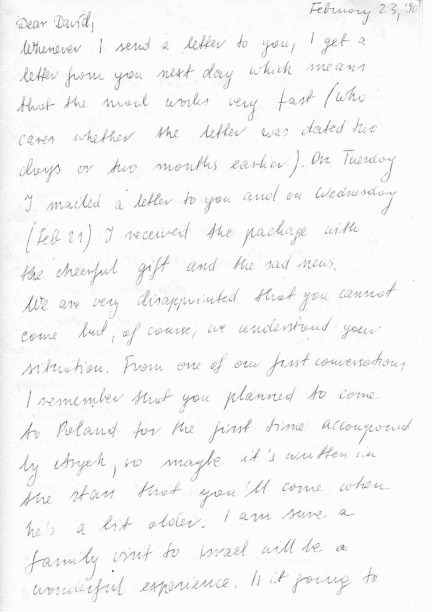 February 23, '90
Dear David,
Whenever I send a letter to you, I get a
letter from you next day which means
that the mail works very fast (who
cares whether the letter was dated two
days or two months earlier). On Tuesday
I mailed a letter to you and on Wednesday
(Feb 21) I received the package with
the cheerful gift and the sad news.
We are very disappointed that you cannot
come but, of course, we understand your
situation. From one of our first conversations
I remember that you planned to come
to Poland for the first time
by Aryeh, so maybe it's written in
the stars that you'll come when
he's a bit older. I am sure a
family visit to Israel will be a
wonderful experience. Is it going to